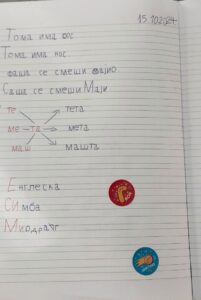 15.10.2024.
Тома има фос
Тома има нос.
фаша се смеши фајио
Саша се смеши Маји
те тета
ме та мета
маш машта
Енглеска
СИмба
Мирдраг